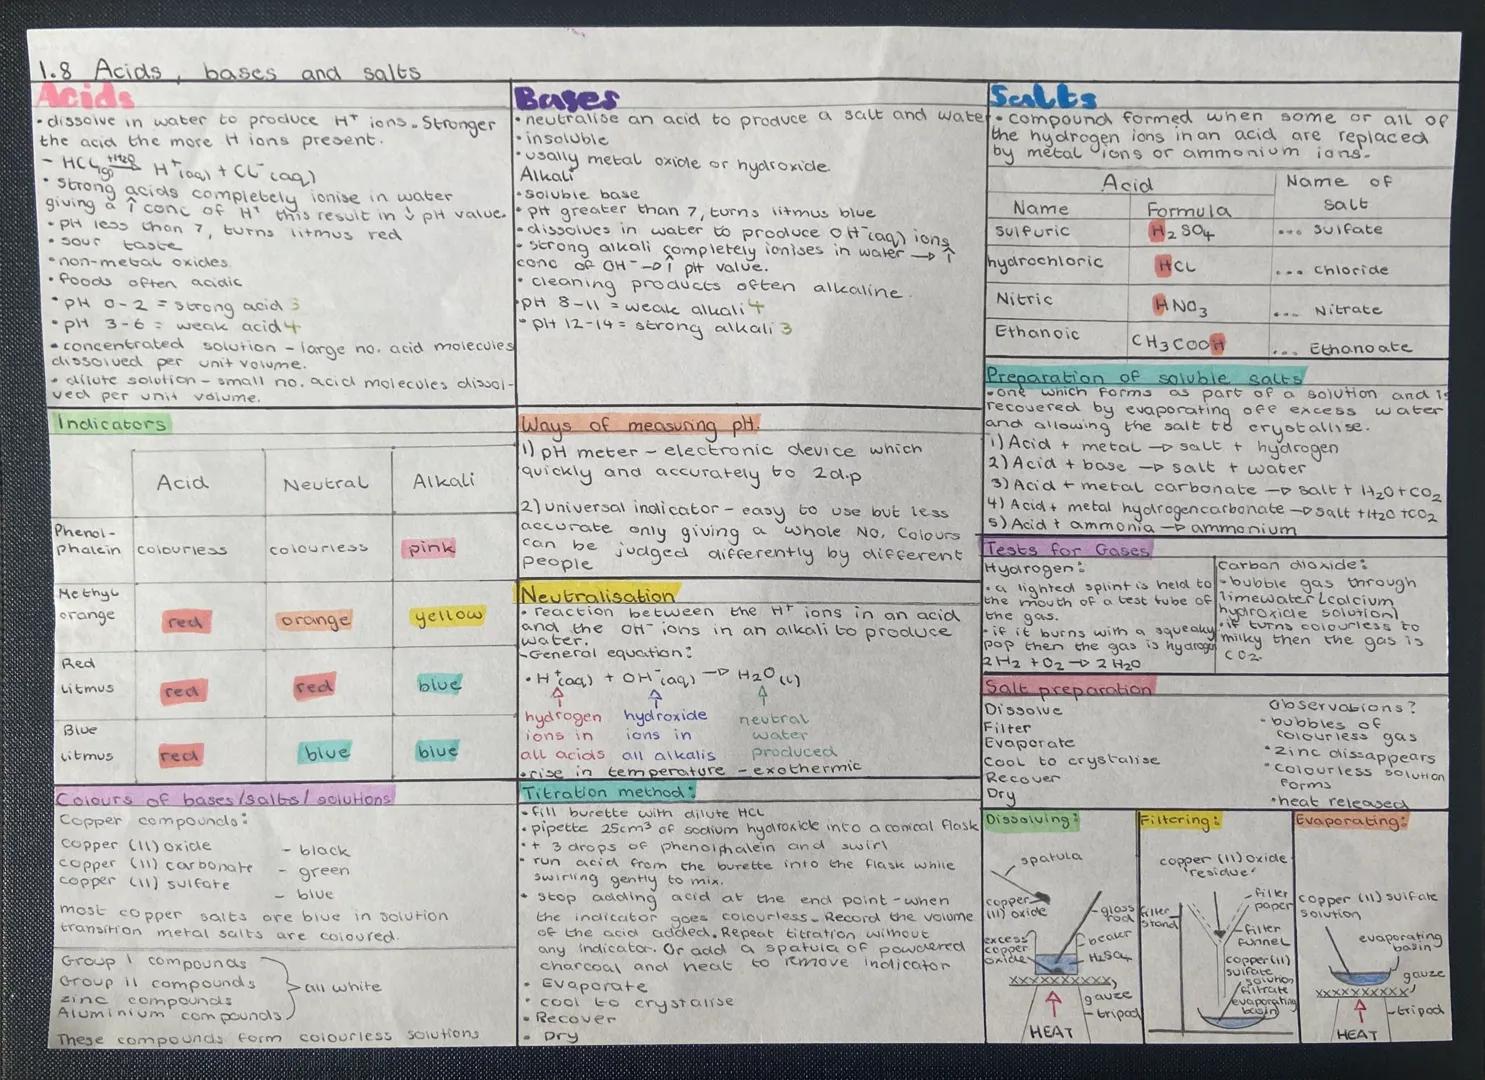 1.8 Acids, bases and salts
Acids
• dissolve in water to produce H⁺ ions. Stronger
the acid the more H ions present.
- HCl(g) +H₂O ⇌ H⁺(aq) + Cl⁻(aq)
• strong acids completely ionise in water
giving a ↑ conc of H⁺ this result in ↓ pH value.
• pH less than 7, turns litmus red
• sour taste
• non-metal oxides
• foods often acidic
• pH 0-2 = strong acid 3
• pH 3-6 = weak acid 4
• concentrated solution - large no. acid molecules
dissolved per unit volume.
• dilute solution - small no. acid molecules dissol-
ved per unit volume.
Indicators
Acid Neutral Alkali
Phenol-
phalein colourless colourless pink
Methyl
orange red orange yellow
Red
litmus red red blue
Blue
litmus red blue blue
Colours of bases/salts/solutions
Copper compounds:
copper (II) oxide - black
copper (II) carbonate - green
copper (II) sulfate - blue
most copper salts are blue in solution
transition metal salts are coloured.
Group I compounds
Group II compounds
zinc compounds
Aluminium compounds
all white
These compounds form colourless solutions
Bases
• neutralise an acid to produce a salt and water
• insoluble
• usally metal oxide or hydroxide
Alkali
• soluble base
• pH greater than 7, turns litmus blue
• dissolves in water to produce OH⁻(aq) ions
- strong alkali completely ionises in water → ↑
conc of OH⁻ → ↑ pH value.
• cleaning products often alkaline.
• pH 8-11 = weak alkali 4
• pH 12-14 = strong alkali 3
Ways of measuring pH.
1) pH meter - electronic device which
quickly and accurately to 2d.p
2) universal indicator - easy to use but less
accurate only giving a whole No. Colours
can be judged differently by different
people
Neutralisation
• reaction between the H⁺ ions in an acid
and the OH⁻ ions in an alkali to produce
water.
- General equation:
• H⁺(aq) + OH⁻(aq) → H₂O(l)
hydrogen hydroxide neutral
ions in ions in water
all acids all alkalis produced
• rise in temperature - exothermic
Titration method:
• fill burette with dilute HCl
• pipette 25cm³ of sodium hydroxide into a conical flask
• + 3 drops of phenolphalein and swirl
• run acid from the burette into the flask while
swirling gently to mix.
• stop adding acid at the end point - when
the indicator goes colourless. Record the volume
of the acid added. Repeat titration without
any indicator. Or add a spatula of powdered
charcoal and heat to remove indicator
• Evaporate
• cool to crystalise
• Recover
• Dry
Salts
• compound formed when some or all of
the hydrogen ions in an acid are replaced
by metal ions or ammonium ions.
Acid Name of
Name Formula salt
Sulfuric H₂SO₄ ... Sulfate
hydrochloric HCl ... Chloride
Nitric HNO₃ ... Nitrate
Ethanoic CH₃COOH ... Ethanoate
Preparation of soluble salts
- one which forms as part of a solution and is
recovered by evaporating off excess water
and allowing the salt to crystallise.
1) Acid + metal → salt + hydrogen
2) Acid + base → salt + water
3) Acid + metal carbonate → salt + H₂O + CO₂
4) Acid + metal hydrogencarbonate → salt + H₂O + CO₂
5) Acid + ammonia → ammonium
Tests for Gases
Hydrogen:
• a lighted splint is held to
the mouth of a test tube of
the gas.
- if it burns with a squeaky
pop then the gas is hydrogen
2H₂ + O₂ → 2H₂O
carbon dioxide:
- bubble gas through
limewater (calcium
hydroxide solution)
• if turns colourless to
milky then the gas is
CO₂.
Salt preparation
Dissolve
Filter
Evaporate
Cool to crystalise
Recover
Dry
Observations?
• bubbles of
colourless gas
• zinc dissappears
• colourless solution
forms
• heat released
Dissolving:
spatula
copper
(II) oxide
glass
rod
excess
copper
oxide
beaker
H₂SO₄
gauze
tripod
HEAT
Filtering:
copper (II) oxide
'residue'
filter
paper
filter
stand
filter
funnel
copper (II)
sulfate
solution
filtrate
evaporating
basin
Evaporating:
copper (II) sulfate
solution
evaporating
basin
gauze
tripod
HEAT